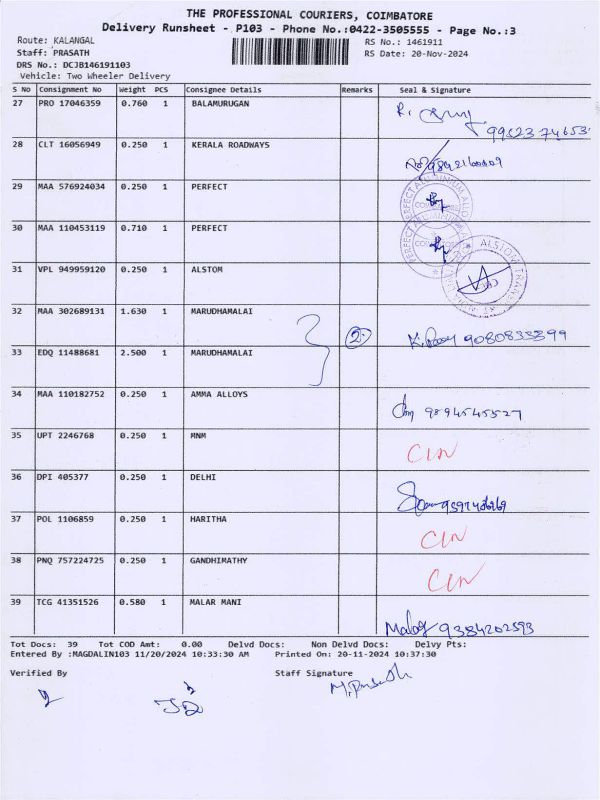 THE PROFESSIONAL COURIERS, COIMBATORE
Delivery Runsheet - P103 - Phone No.:0422-3505555 - Page No.:3
Route: KALANGAL RS No.: 1461911
Staff: PRASATH RS Date: 20-Nov-2024
DRS No.: DCJB146191103
Vehicle: Two Wheeler Delivery
S No Consignment No Weight PCS Consignee Details Remarks Seal & Signature
27 PRO 17046359 0.760 1 BALAMURUGAN
28 CLT 16056949 0.250 1 KERALA ROADWAYS
29 MAA 576924034 0.250 1 PERFECT
30 MAA 110453119 0.710 1 PERFECT
31 VPL 949959120 0.250 1 ALSTOM
32 MAA 302689131 1.630 1 MARUDHAMALAI 2 9080833399
33 EDQ 11488681 2.500 1 MARUDHAMALAI
34 MAA 110182752 0.250 1 AMMA ALLOYS 9894545527
35 UPT 2246768 0.250 1 MNM
36 DPI 405377 0.250 1 DELHI
37 POL 1106859 0.250 1 HARITHA
38 PNQ 757224725 0.250 1 GANDHIMATHY
39 TCG 41351526 0.580 1 MALAR MANI 9384202593
Tot Docs: 39 Tot COD Amt: 0.00 Delvd Docs: Non Delvd Docs: Delvy Pts:
Entered By :MAGDALIN103 11/20/2024 10:33:30 AM Printed On: 20-11-2024 10:37:30
Verified By Staff Signature
M.Prasath